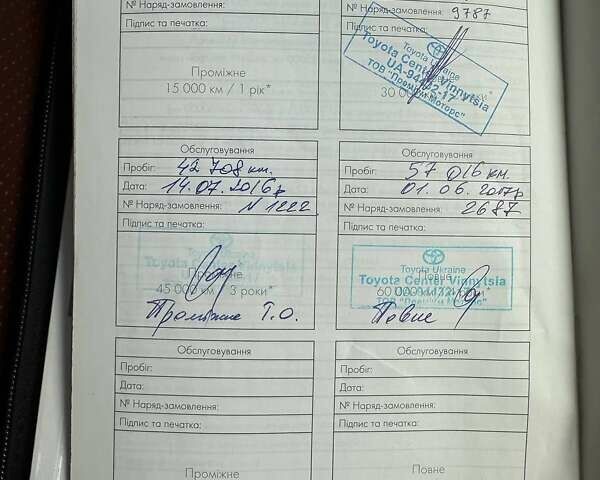 № Наряд-замовлення:
Підпис та печатка:
Проміжне
15 000 км / 1 рік*
№ Наряд-замовлення: 9787
Підпис та печатка:
Toyota Ukraine
Toyota Center Vinnytsia
ТОВ "Преміум Моторс"
30
Обслуговування
Пробіг: 42 708 км.
Дата: 14.07.2016р
№ Наряд-замовлення: N 1222
Підпис та печатка:
Toyota Center Vinnytsia
Проміжне
45 000 км / 3 роки*
Проміжне Т.О.
Обслуговування
Пробіг: 57 016 км.
Дата: 01.06.2017р
№ Наряд-замовлення: 2687
Підпис та печатка:
Toyota Ukraine
Повне
Toyota Center Vinnytsia
60 000
ТОВ "Преміум Моторс"
Повне
Обслуговування
Пробіг:
Дата:
№ Наряд-замовлення:
Підпис та печатка:
Проміжне
Обслуговування
Пробіг:
Дата:
№ Наряд-замовлення:
Підпис та печатка:
Повне